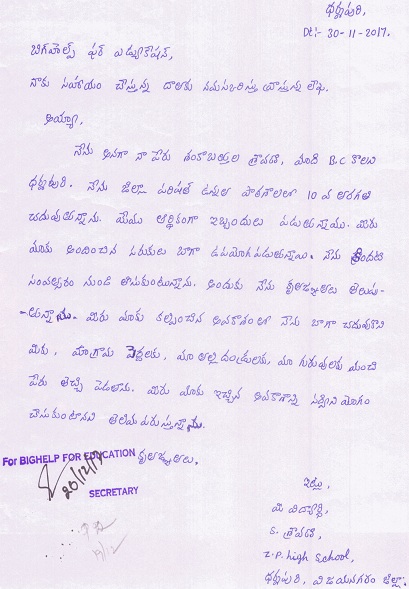 ధర్మపురి,
Dt:- 30-11-2017.
బిగ్‌హెల్ప్ ఫర్ ఎడ్యుకేషన్,
నాకు సహాయం చేస్తున్న దాతకు నమస్కరిస్తు వ్రాస్తున్న లేఖ.
అయ్యా,
నేను అనగా నా పేరు శ్రావణి, మాది B.C కాలని
ధర్మపురి. నేను జిల్లా పరిషత్ ఉన్నత పాఠశాలలో 10 వ తరగతి
చదువుతున్నాను. మేము ఆర్థికంగా ఇబ్బందులు పడుతున్నాము. మీరు
మాకు అందించిన సరుకులు బాగా ఉపయోగపడుతున్నాయి. నేను కిందటి
సంవత్సరం నుండి తీసుకుంటున్నాను. అందుకు నేను కృతజ్ఞతలు తెలుపు-
-తున్నాను. మీరు మాకు కల్పించిన అవకాశంతో నేను బాగా చదువుకొని
మీకు, మాగ్రామ పెద్దలకు, మా తల్లి దండ్రులకు, మా గురువులకు మంచి
పేరు తెచ్చి పెడతాను. మీరు మాకు ఇచ్చిన అవకాశాన్ని సద్వినియోగం
చేసుకుంటానని తెలియపరుస్తున్నాను.
కృతజ్ఞతలు,
For BIGHELP FOR EDUCATION
20/12/17
SECRETARY
ఇట్లు,
మీ విద్యార్థి
S. శ్రావణి,
Z.P. high school,
ధర్మపురి, విజయనగరం జిల్లా.